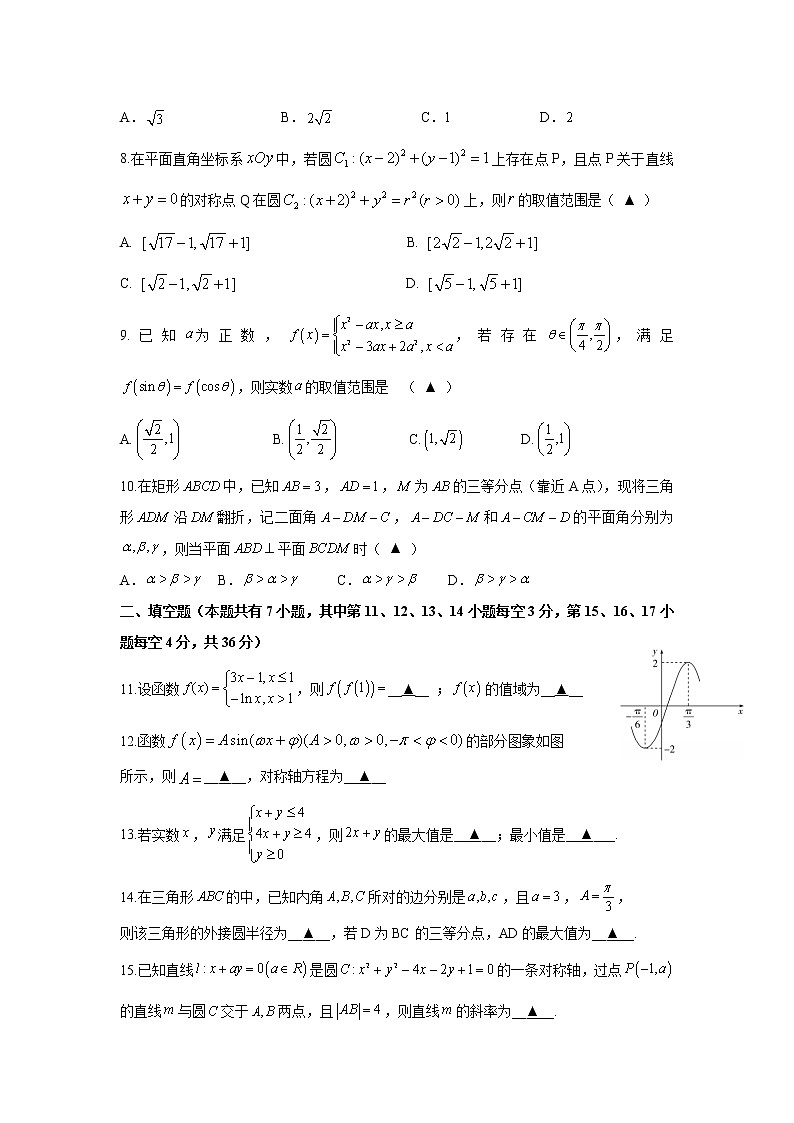 A. √3 B. 2√2 C. 1 D. 2
8.在平面直角坐标系 xOy 中，若圆 C₁ : (x − 2)² + (y − 1)² = 1 上存在点 P，且点 P 关于直线
x + y = 0 的对称点 Q 在圆 C₂ : (x + 2)² + y² = r² (r > 0) 上，则 r 的取值范围是（ ▲ ）
A. [√17 − 1, √17 + 1] B. [2√2 − 1, 2√2 + 1]
C. [√2 − 1, √2 + 1] D. [√5 − 1, √5 + 1]
9. 已知 a 为正数， f(x) = { x² − ax, x ≥ a ; x² − 3ax + 2a², x < a ，若存在 θ ∈ (π/4, π/2) ，满足
f(sin θ) = f(cos θ) ，则实数 a 的取值范围是 （ ▲ ）
A. (√2/2, 1) B. (1/2, √2/2) C. (1, √2) D. (1/2, 1)
10.在矩形 ABCD 中，已知 AB = 3 ， AD = 1 ， M 为 AB 的三等分点（靠近 A 点），现将三角
形 ADM 沿 DM 翻折，记二面角 A − DM − C ， A − DC − M 和 A − CM − D 的平面角分别为
α, β, γ ，则当平面 ABD ⊥ 平面 BCDM 时（ ▲ ）
A. α > β > γ B. β > α > γ C. α > γ > β D. β > γ > α
二、填空题（本题共有 7 小题，其中第 11、12、13、14 小题每空 3 分，第 15、16、17 小
题每空 4 分，共 36 分）
11.设函数 f(x) = { 3x − 1, x ≤ 1 ; −ln x, x > 1 ，则 f(f(1)) = __▲__ ； f(x) 的值域为__▲__
12.函数 f(x) = A sin(ϖx + φ)(A > 0, ϖ > 0, −π < φ < 0) 的部分图象如图
所示，则 A = __▲__，对称轴方程为__▲__
y
2
−π/6 0 π/3 x
−2
13.若实数 x ， y 满足 { x + y ≤ 4 ; 4x + y ≥ 4 ; y ≥ 0 ，则 2x + y 的最大值是__▲__；最小值是__▲__.
14.在三角形 ABC 的中，已知内角 A, B, C 所对的边分别是 a, b, c ，且 a = 3 ， A = π/3 ，
则该三角形的外接圆半径为__▲__，若 D 为 BC 的三等分点，AD 的最大值为__▲__.
15.已知直线 l : x + ay = 0 (a ∈ R) 是圆 C : x² + y² − 4x − 2y + 1 = 0 的一条对称轴，过点 P(−1, a)
的直线 m 与圆 C 交于 A, B 两点，且 |AB| = 4 ，则直线 m 的斜率为__▲__.